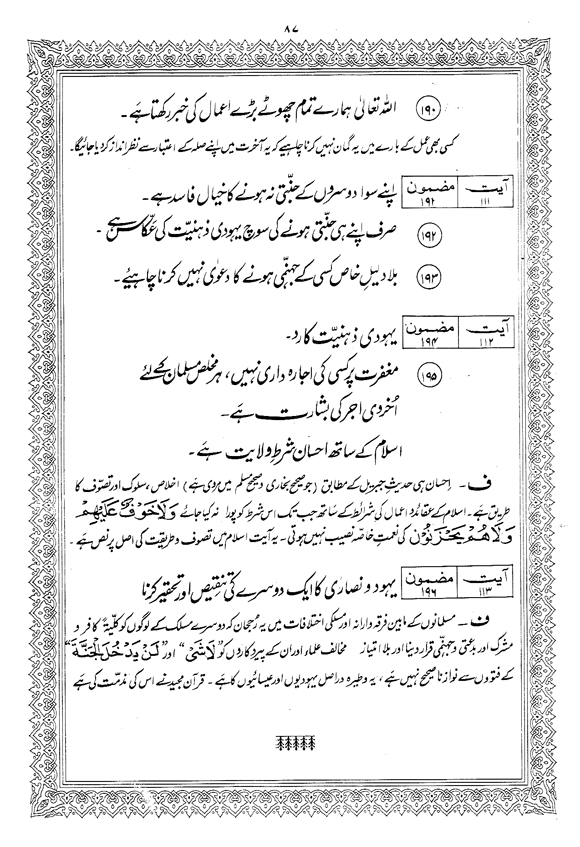 ۸۷
۱۹۰ اللہ تعالیٰ ہمارے تمام چھوٹے بڑے اعمال کی خبر رکھتا ہے ۔
کسی بھی عمل کے بارے میں یہ گمان نہیں کرنا چاہیے کہ یہ آخرت میں اپنے صلہ کے اعتبار سے نظر انداز کر دیا جائیگا
آیت ۱۱۱ مضمون ۱۹۲ اپنے سوا دوسروں کے جنتی نہ ہونے کا خیال فاسد ہے ۔
۱۹۲ صرف اپنے ہی جنتی ہونے کی سوچ یہودی ذہنیت کی عکاس ہے ۔
۱۹۳ بلا دلیلِ خاص کسی کے جہنمی ہونے کا دعویٰ نہیں کرنا چاہیئے ۔
آیت ۱۱۲ مضمون ۱۹۴ یہودی ذہنیت کا رد ۔
۱۹۵ مغفرت پر کسی کی اجارہ داری نہیں، ہر مخلص مسلمان کیلئے
اُخروی اجر کی بشارت ہے ۔
اسلام کے ساتھ احسان شرطِ ولایت ہے ۔
ف ۔ احسان ہی حدیثِ جبریل کے مطابق (جو صحیح بخاری و صحیح مسلم میں مروی ہے) اخلاص، سلوک اور تصوف کا
طریق ہے ۔ اسلام کے عقائد و اعمال کی شرائط کے ساتھ جب تک اس شرط کو پورا نہ کیا جائے وَلَا خَوْفٌ عَلَيْهِمْ
وَلَا هُمْ يَحْزَنُوْن کی نعمتِ خاصہ نصیب نہیں ہوتی ۔ یہ آیت اسلام میں تصوف و طریقت کی اصل پر نص ہے ۔
آیت ۱۱۳ مضمون ۱۹۶ یہود و نصاریٰ کا ایک دوسرے کی تنقیص اور تحقیر کرنا
ف ۔ مسلمانوں کے مابین فرقہ دارانہ اور مسلکی اختلافات میں یہ رُجحان کہ دوسرے مسلک کے لوگوں کو کلیۃً کافر و
مشرک اور بدعتی و جہنمی قرار دینا اور بلا امتیاز مخالف علماء اور ان کے پیروکاروں کو "لَا شَیْ" اور "لَنْ يَدْخُلَ الْجَنَّةَ"
کے فتووں سے نوازنا صحیح نہیں ہے، یہ وطیرہ دراصل یہودیوں اور عیسائیوں کا ہے ۔ قرآن مجید نے اس کی مذمت کی ہے